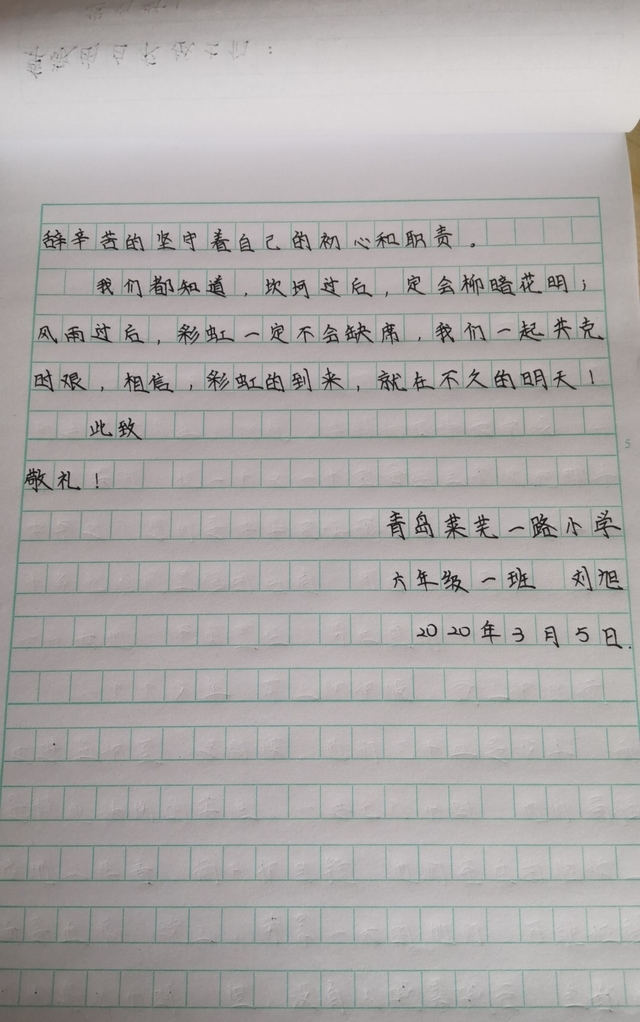 辞辛苦的坚守着自己的初心和职责。
我们都知道，坎坷过后，定会柳暗花明；
风雨过后，彩虹一定不会缺席，我们一起共克
时艰，相信，彩虹的到来，就在不久的明天！
此致
敬礼！
青岛莱芜一路小学
六年级一班 刘旭
2020年3月5日.
5